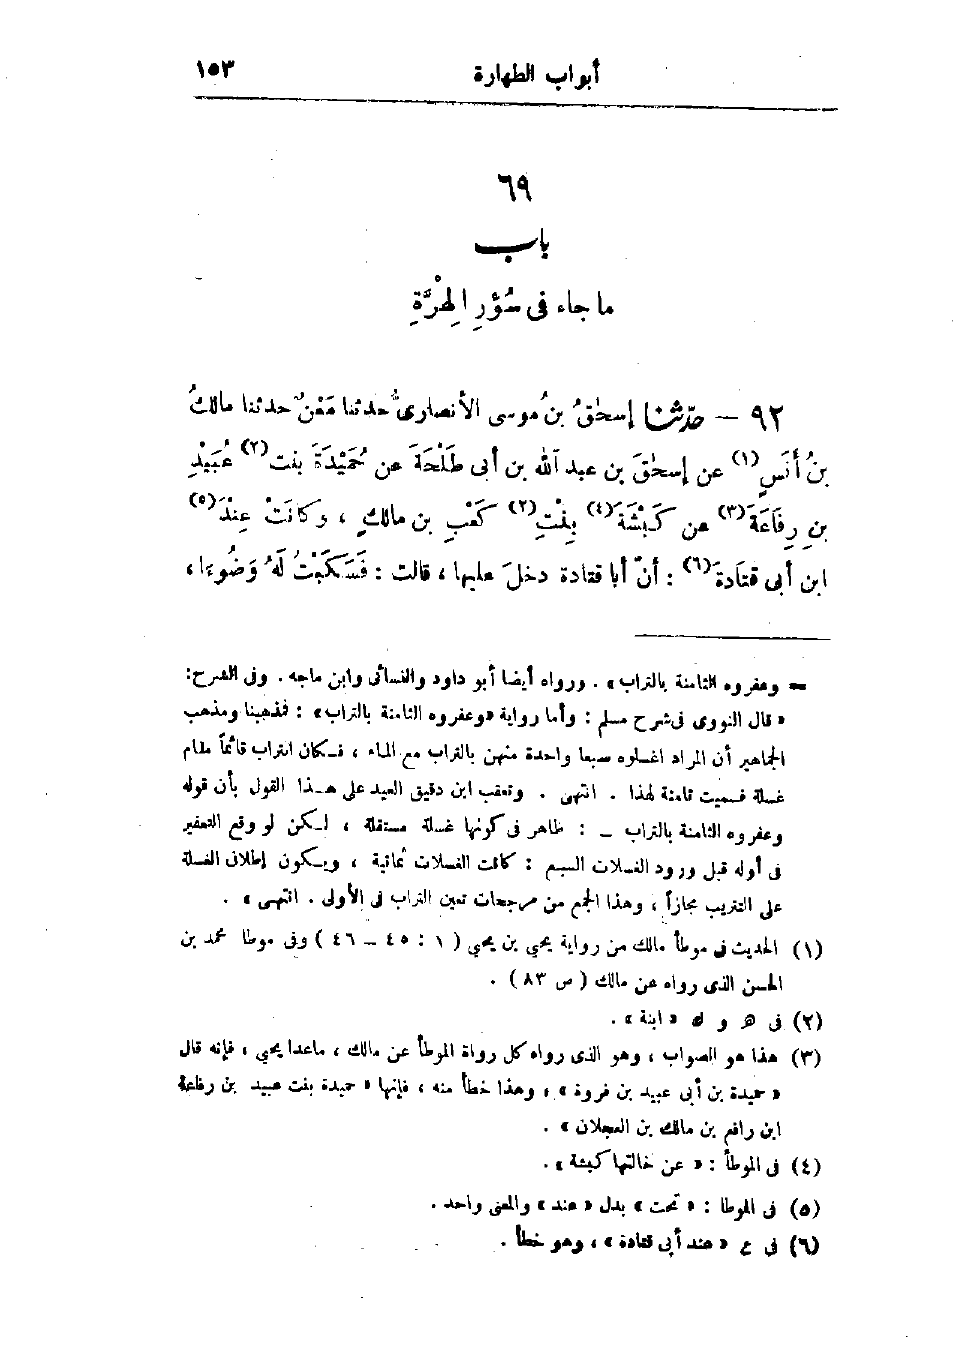 أبواب الطهارة ١٥٣
٦٩
باب
ما جاء فى سُؤرِ الهِرَّةِ
٩٢ – حدّثنا إسحٰقُ بنُ موسى الأنصارىُّ حدثنا مَعْنٌ حدثنا مالكُ
بنُ أَنَسٍ (١) عن إسحٰقَ بن عبد الله بن أبى طَلْحَةَ عن حُمَيْدَةَ بنت (٢) عُبَيْدِ
بنِ رِفَاعَةَ (٣) عن كَبْشَةَ (٤) بِنْتِ (٢) كَعْبِ بن مالكٍ ، وكانَتْ عِنْدَ (٥)
ابن أبى قتادةَ (٦) : أنّ أبا قتادة دخلَ عليها ، قالت : فَسَكَبْتُ لَهُ وَضُوءًا ،
= وعفروه الثامنة بالتراب» . ورواه أيضا أبو داود والنسائى وابن ماجه . وفى الشرح:
« قال النووى فى شرح مسلم : وأما رواية «وعفروه الثامنة بالتراب» : فمذهبنا ومذهب
الجماهير أن المراد اغسلوه سبعا واحدة منهن بالتراب مع الماء ، فكان التراب قائماً مقام
غسلة فسميت ثامنة لهذا . انتهى . وتعقب ابن دقيق العيد على هذا القول بأن قوله
وعفروه الثامنة بالتراب – : ظاهر فى كونها غسلة مستقلة ، لكن لو وقع التعفير
فى أوله قبل ورود الغسلات السبع : كانت الغسلات ثمانية ، ويكون إطلاق الغسلة
على التتريب مجازاً ، وهذا الجمع من مرجحات تعين التراب فى الأولى . انتهى » .
(١) الحديث فى موطأ مالك من رواية يحيى بن يحيى ( ١ : ٤٥ – ٤٦ ) وفى موطا محمد بن
الحسن الذى رواه عن مالك ( ص ٨٣ ) .
(٢) فى هـ و ك « ابنة » .
(٣) هذا هو الصواب ، وهو الذى رواه كل رواة الموطأ عن مالك ، ماعدا يحيى ، فإنه قال
« حميدة بن أبى عبيد بن فروة » ، وهذا خطأ منه ، فإنها « حميدة بنت عبيد بن رفاعة
ابن رافع بن مالك بن العجلان » .
(٤) فى الموطأ : « عن خالتها كبشة » .
(٥) فى الموطا : « تحت » بدل « عند » والمعنى واحد .
(٦) فى ع « عند أبى قتادة » ، وهو خطأ .